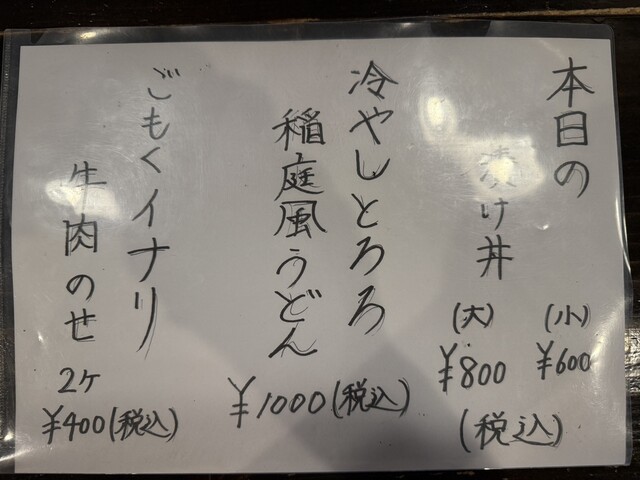 本日の
漬け丼
(小)
¥600
(大)
¥800
(税込)
冷やしとろろ
稲庭風うどん
¥1000(税込)
ごもくイナリ
牛肉のせ
2ヶ
¥400(税込)